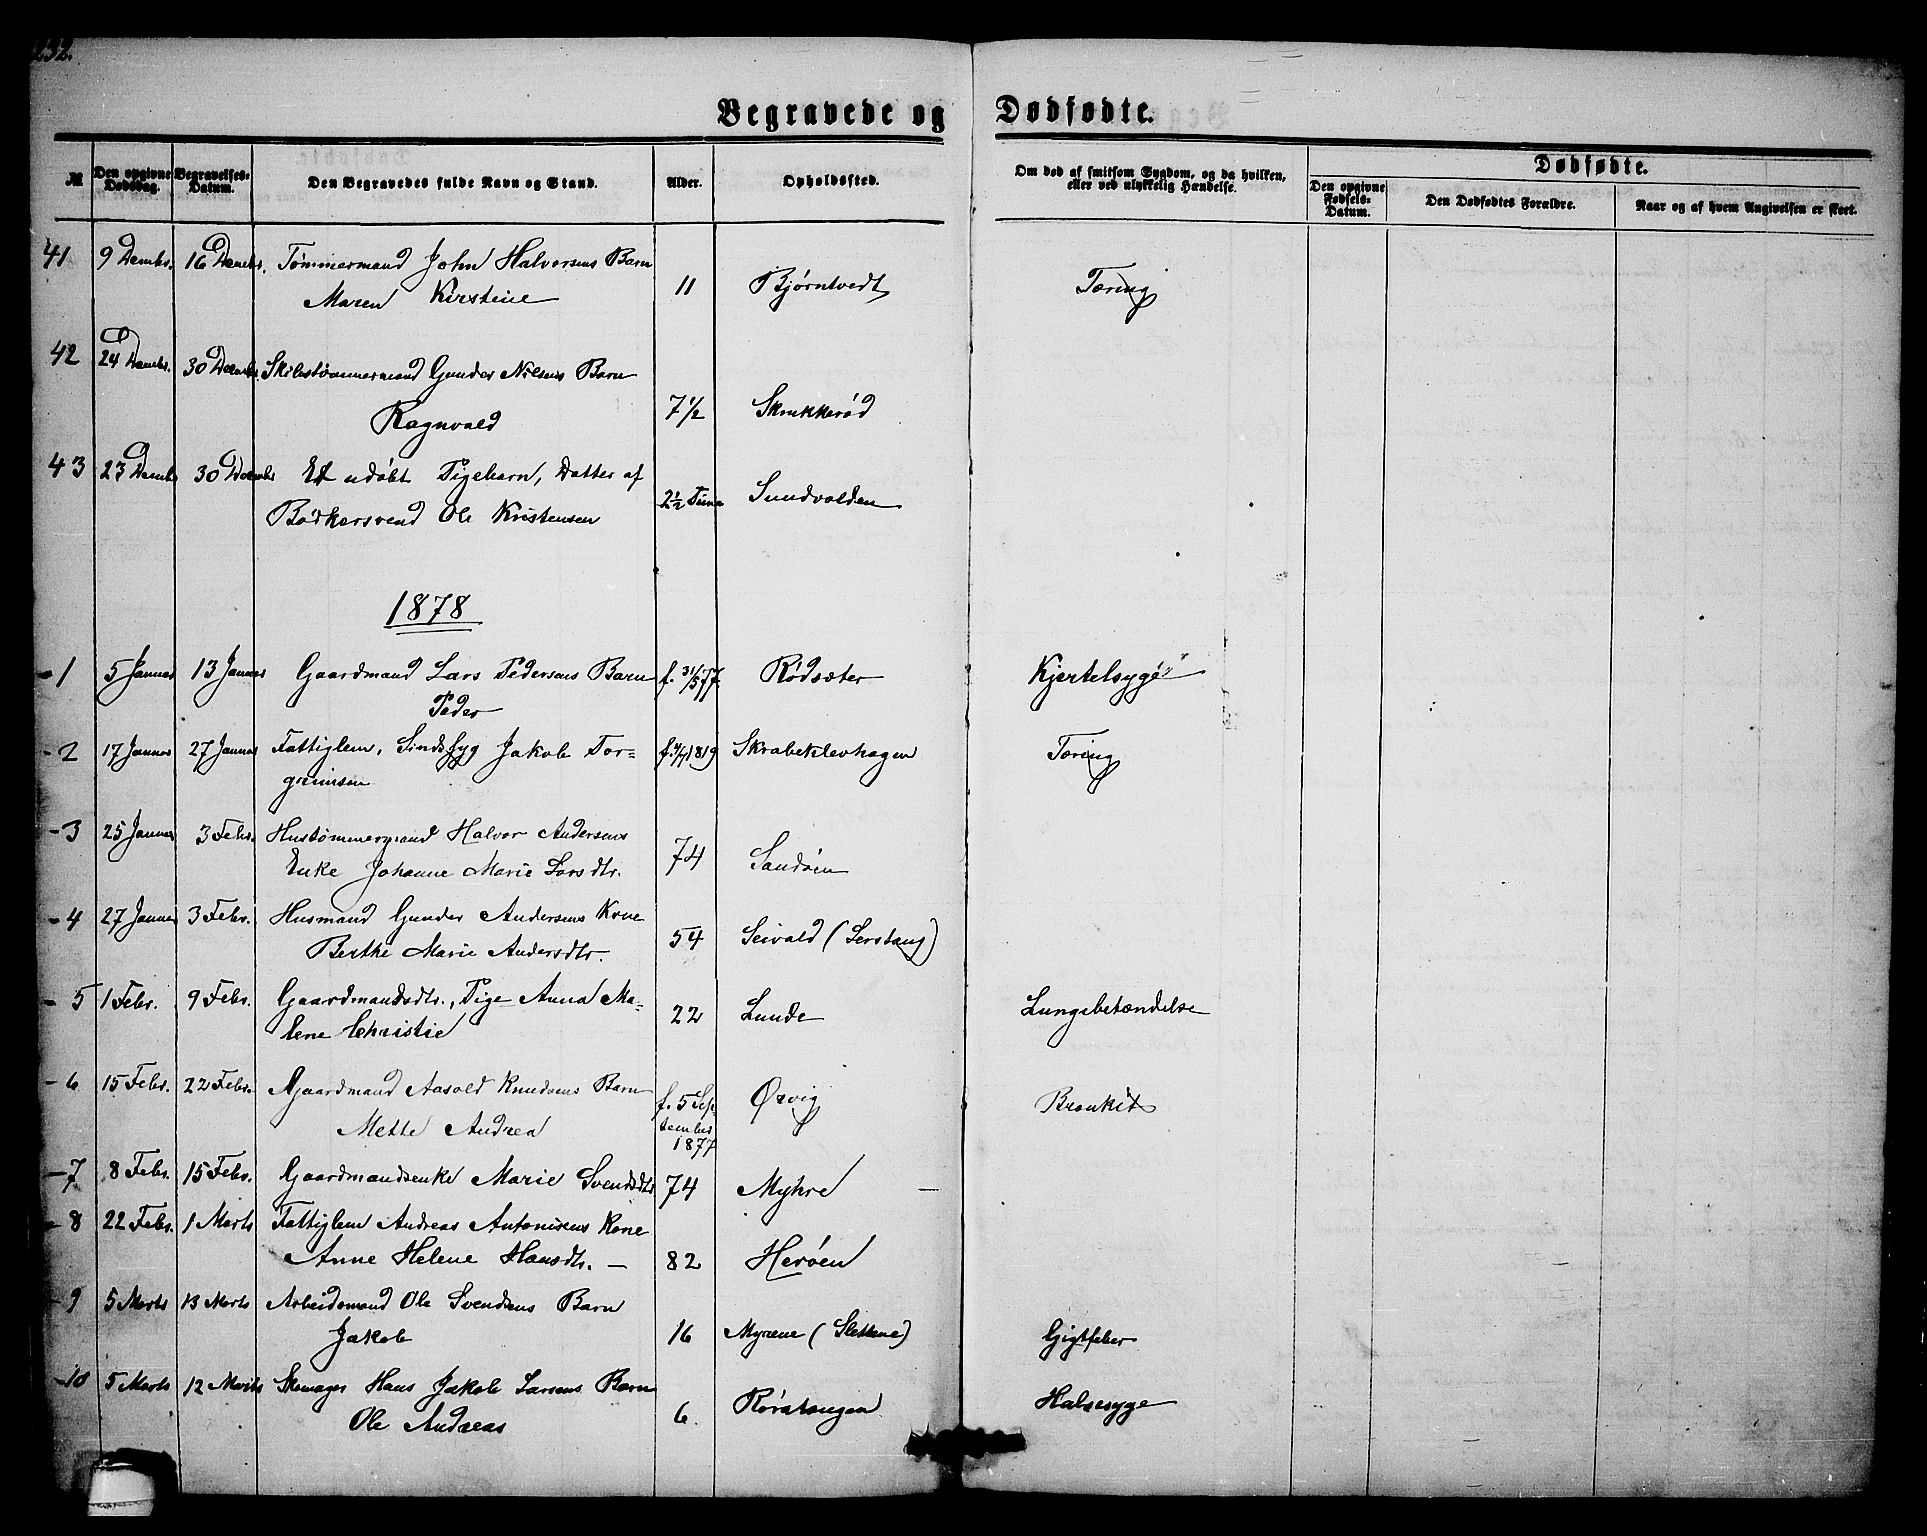 232.
Begravede og Dødfødte.
№
Den opgivne Dødsdag.
Begravelses-Datum.
Den Begravedes fulde Navn og Stand.
Alder.
Opholdssted.
Om død af smitsom Sygdom, og da hvilken, eller ved ulykkelig Hændelse.
Dødfødte.
Den opgivne Fødsels-Datum.
Den Dødfødtes Forældre.
Naar og af hvem Angivelsen er skeet.
41 9 Decmbr. 16 Decmbr. Tømmermand John Halvorsens Barn
Maren Kirstine 11 Bjørntvedt Tæring
42 24 Decmbr. 30 Decmbr Skibstømmermand Gunder Nilsens Barn
Ragnvald 7 1/2 Skrukkerød
43 23 Decmbr 30 Decmbr Et udøbt Pigebarn, Datter af
Bødkersvend Ole Kristensen 2 1/2 Time Sundvolden
1878
-1 5 Januar 13 Januar Gaardmand Lars Pedersens Barn f. 31/5 77. Rødsæter Kjertelsyge
Peder
-2 17 Januar 27 Januar Fattiglem, Sindssyg Jakob Tor- 1819 Skrabeklevhagen Tæring
grimsen
-3 25 Januar 3 Febr. Hustømmermand Halvor Andersens
Enke Johanne Marie Larsdtr. 74 Sandøen
-4 27 Januar 3 Febr. Husmand Gunder Andersens Kone
Berthe Marie Andersdtr. 54 Seivald (Serstang)
-5 1 Febr. 9 Febr. Gaardmandsdtr., Pige Anna Ma- 22 Lunde Lungebetændelse
lene Christie
-6 15 Febr. 22 Febr. Gaardmand Aasold Knudsens Barn
Mette Andrea f. 5 September 1877 Ørvig Bronkit
-7 8 Febr. 15 Febr. Gaardmandsenke Marie Svendsdtr 74 Myhre —
-8 22 Febr. 1 Marts Fattiglem Andreas Antonisens Kone
Anne Helene Hansdtr. — 82 Herøen
-9 5 Marts 13 Marts Arbeidsmand Ole Svendsens Barn
Jakob 16 Myrene (Slettene) Gigtfeber
-10 5 Marts 12 Marts Skomager Hans Jakob Larsens Barn
Ole Andreas 6. Rørstangen Halssyge